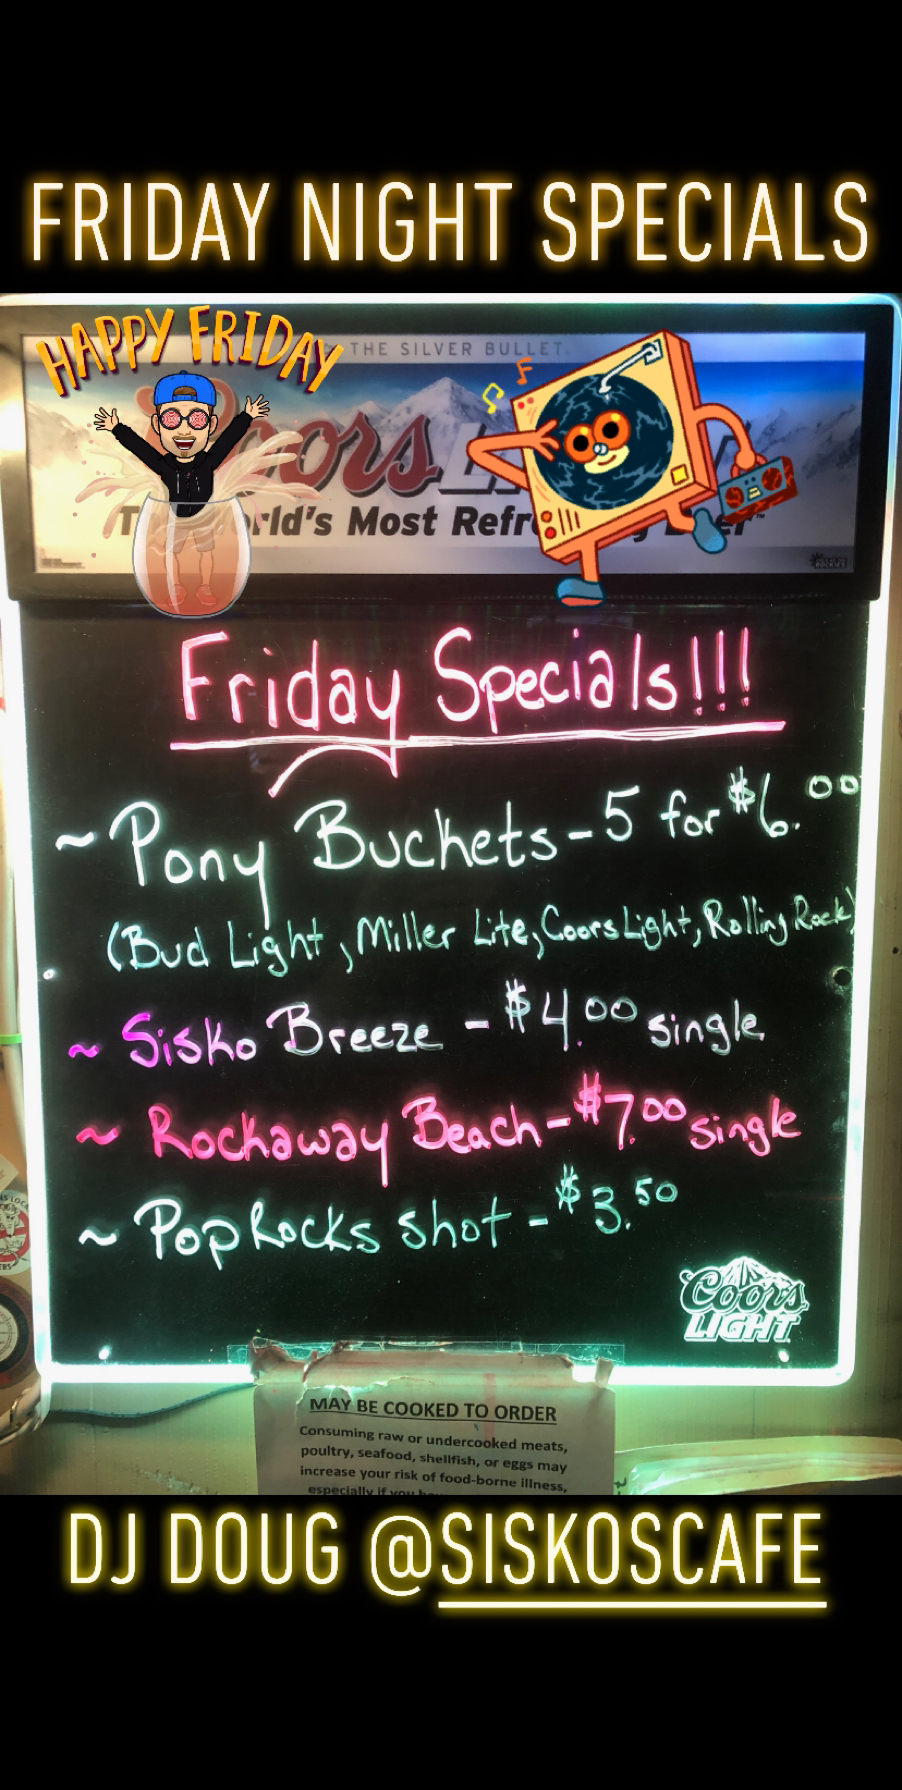 FRIDAY NIGHT SPECIALS
HAPPY FRIDAY
THE SILVER BULLET.
Coors
World's Most
Friday Specials!!!
~ Pony Buckets - 5 for $6.00
(Bud Light, Miller Lite, Coors Light, Rolling Rock)
~ Sisko Breeze - $4.00 single
~ Rockaway Beach - $7.00 single
~ Pop Rocks shot - $3.50
Coors
LIGHT
MAY BE COOKED TO ORDER
Consuming raw or undercooked meats,
poultry, seafood, shellfish, or eggs may
increase your risk of food-borne illness,
especially if you
DJ DOUG @SISKOSCAFE